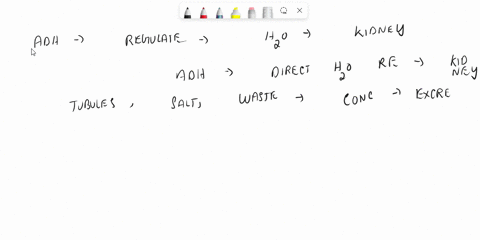 ADH → REGULATE → H₂O → KIDNEY
ADH → DIRECT H₂O RE → KIDNEY
TUBULES, SALT, WASTE → CONC → EXCRE